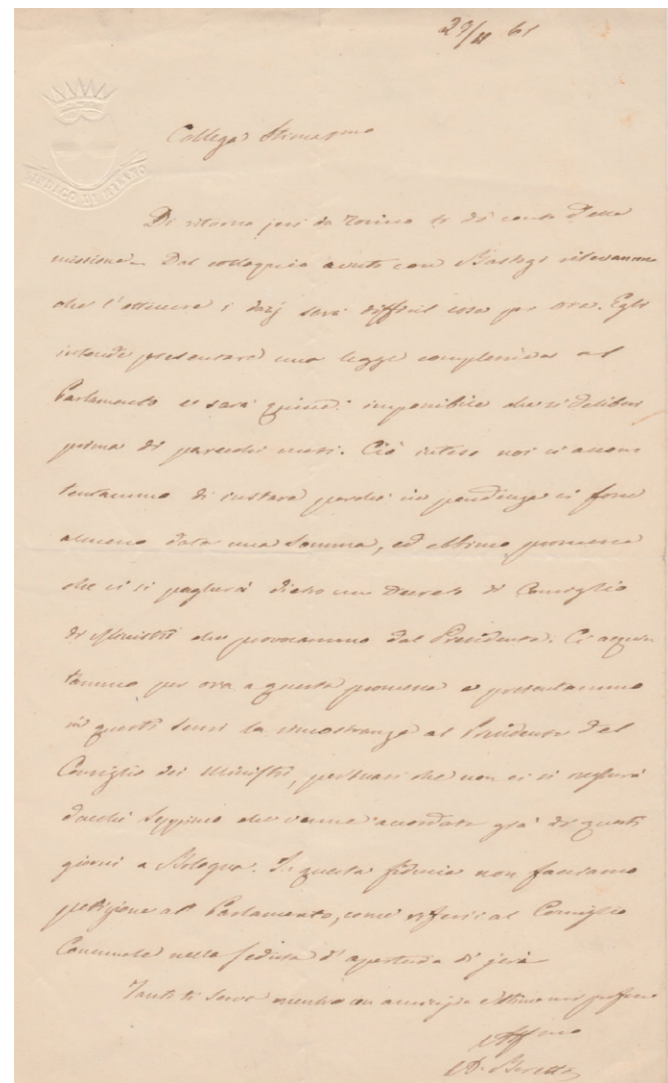 29/11 61
SINDACO DI MILANO
Collega Stimatmo
Di ritorno jeri da Torino ti dò conto della
missione. Dal colloquio avuto con Bastogi rilevammo
che l'ottenere i dazj sarà difficil cosa per ora. Egli
intende presentare una legge complessiva al
Parlamento e sarà quindi impossibile che si deliberi
prima di parecchi mesi. Ciò inteso noi ci accon
tentammo di instare perchè in pendenza ci fosse
almeno data una somma, ed ebbimo promessa
che ci si pagherà dietro un Decreto di Consiglio
di Ministri che provocammo dal Presidente. Ci acquie
tammo per ora a questa promessa e presentammo
in questi sensi la rimostranza al Presidente del
Consiglio dei Ministri, persuasi che non ci si negherà
dacchè seppimo che venne accordata già di questi
giorni a Bologna. In questa fiducia non facciamo
petizione al Parlamento, come riferii al Consiglio
Comunale nella seduta d'apertura di jeri
Tanto ti serva mentre con amicizia
Affmo
A. Beretta